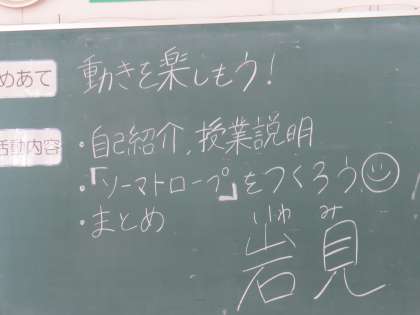 めあて 動きを楽しもう!
活動内容 ・自己紹介、授業説明
・「ソーマトロープ」をつくろう
・まとめ
いわ み
岩見